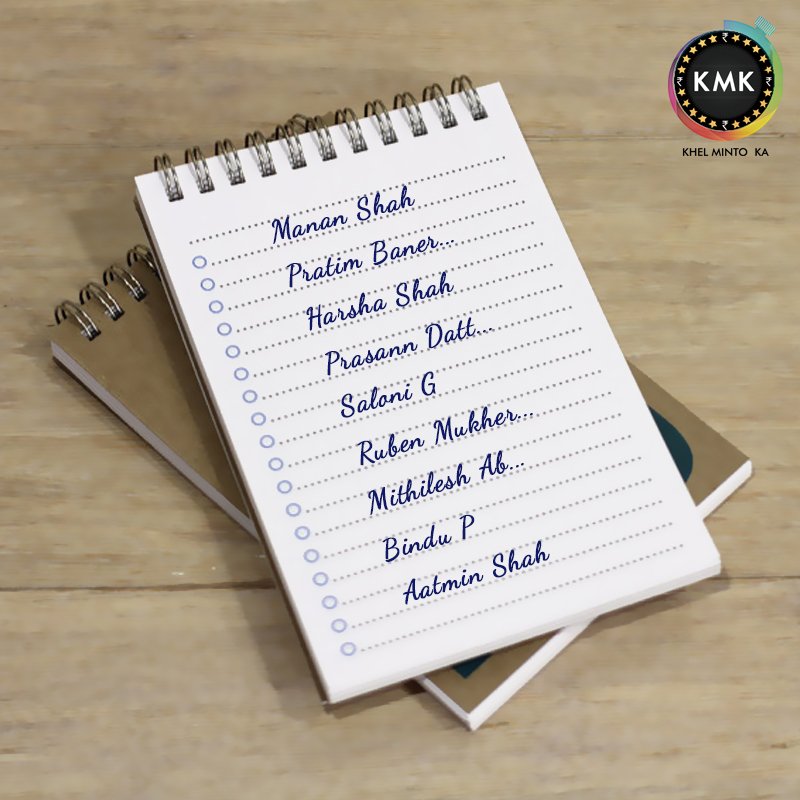 KMK
KHEL MINTO KA
Manan Shah
Pratim Baner...
Harsha Shah
Prasann Datt...
Saloni G
Ruben Mukher...
Mithilesh Ab...
Bindu P
Aatmin Shah